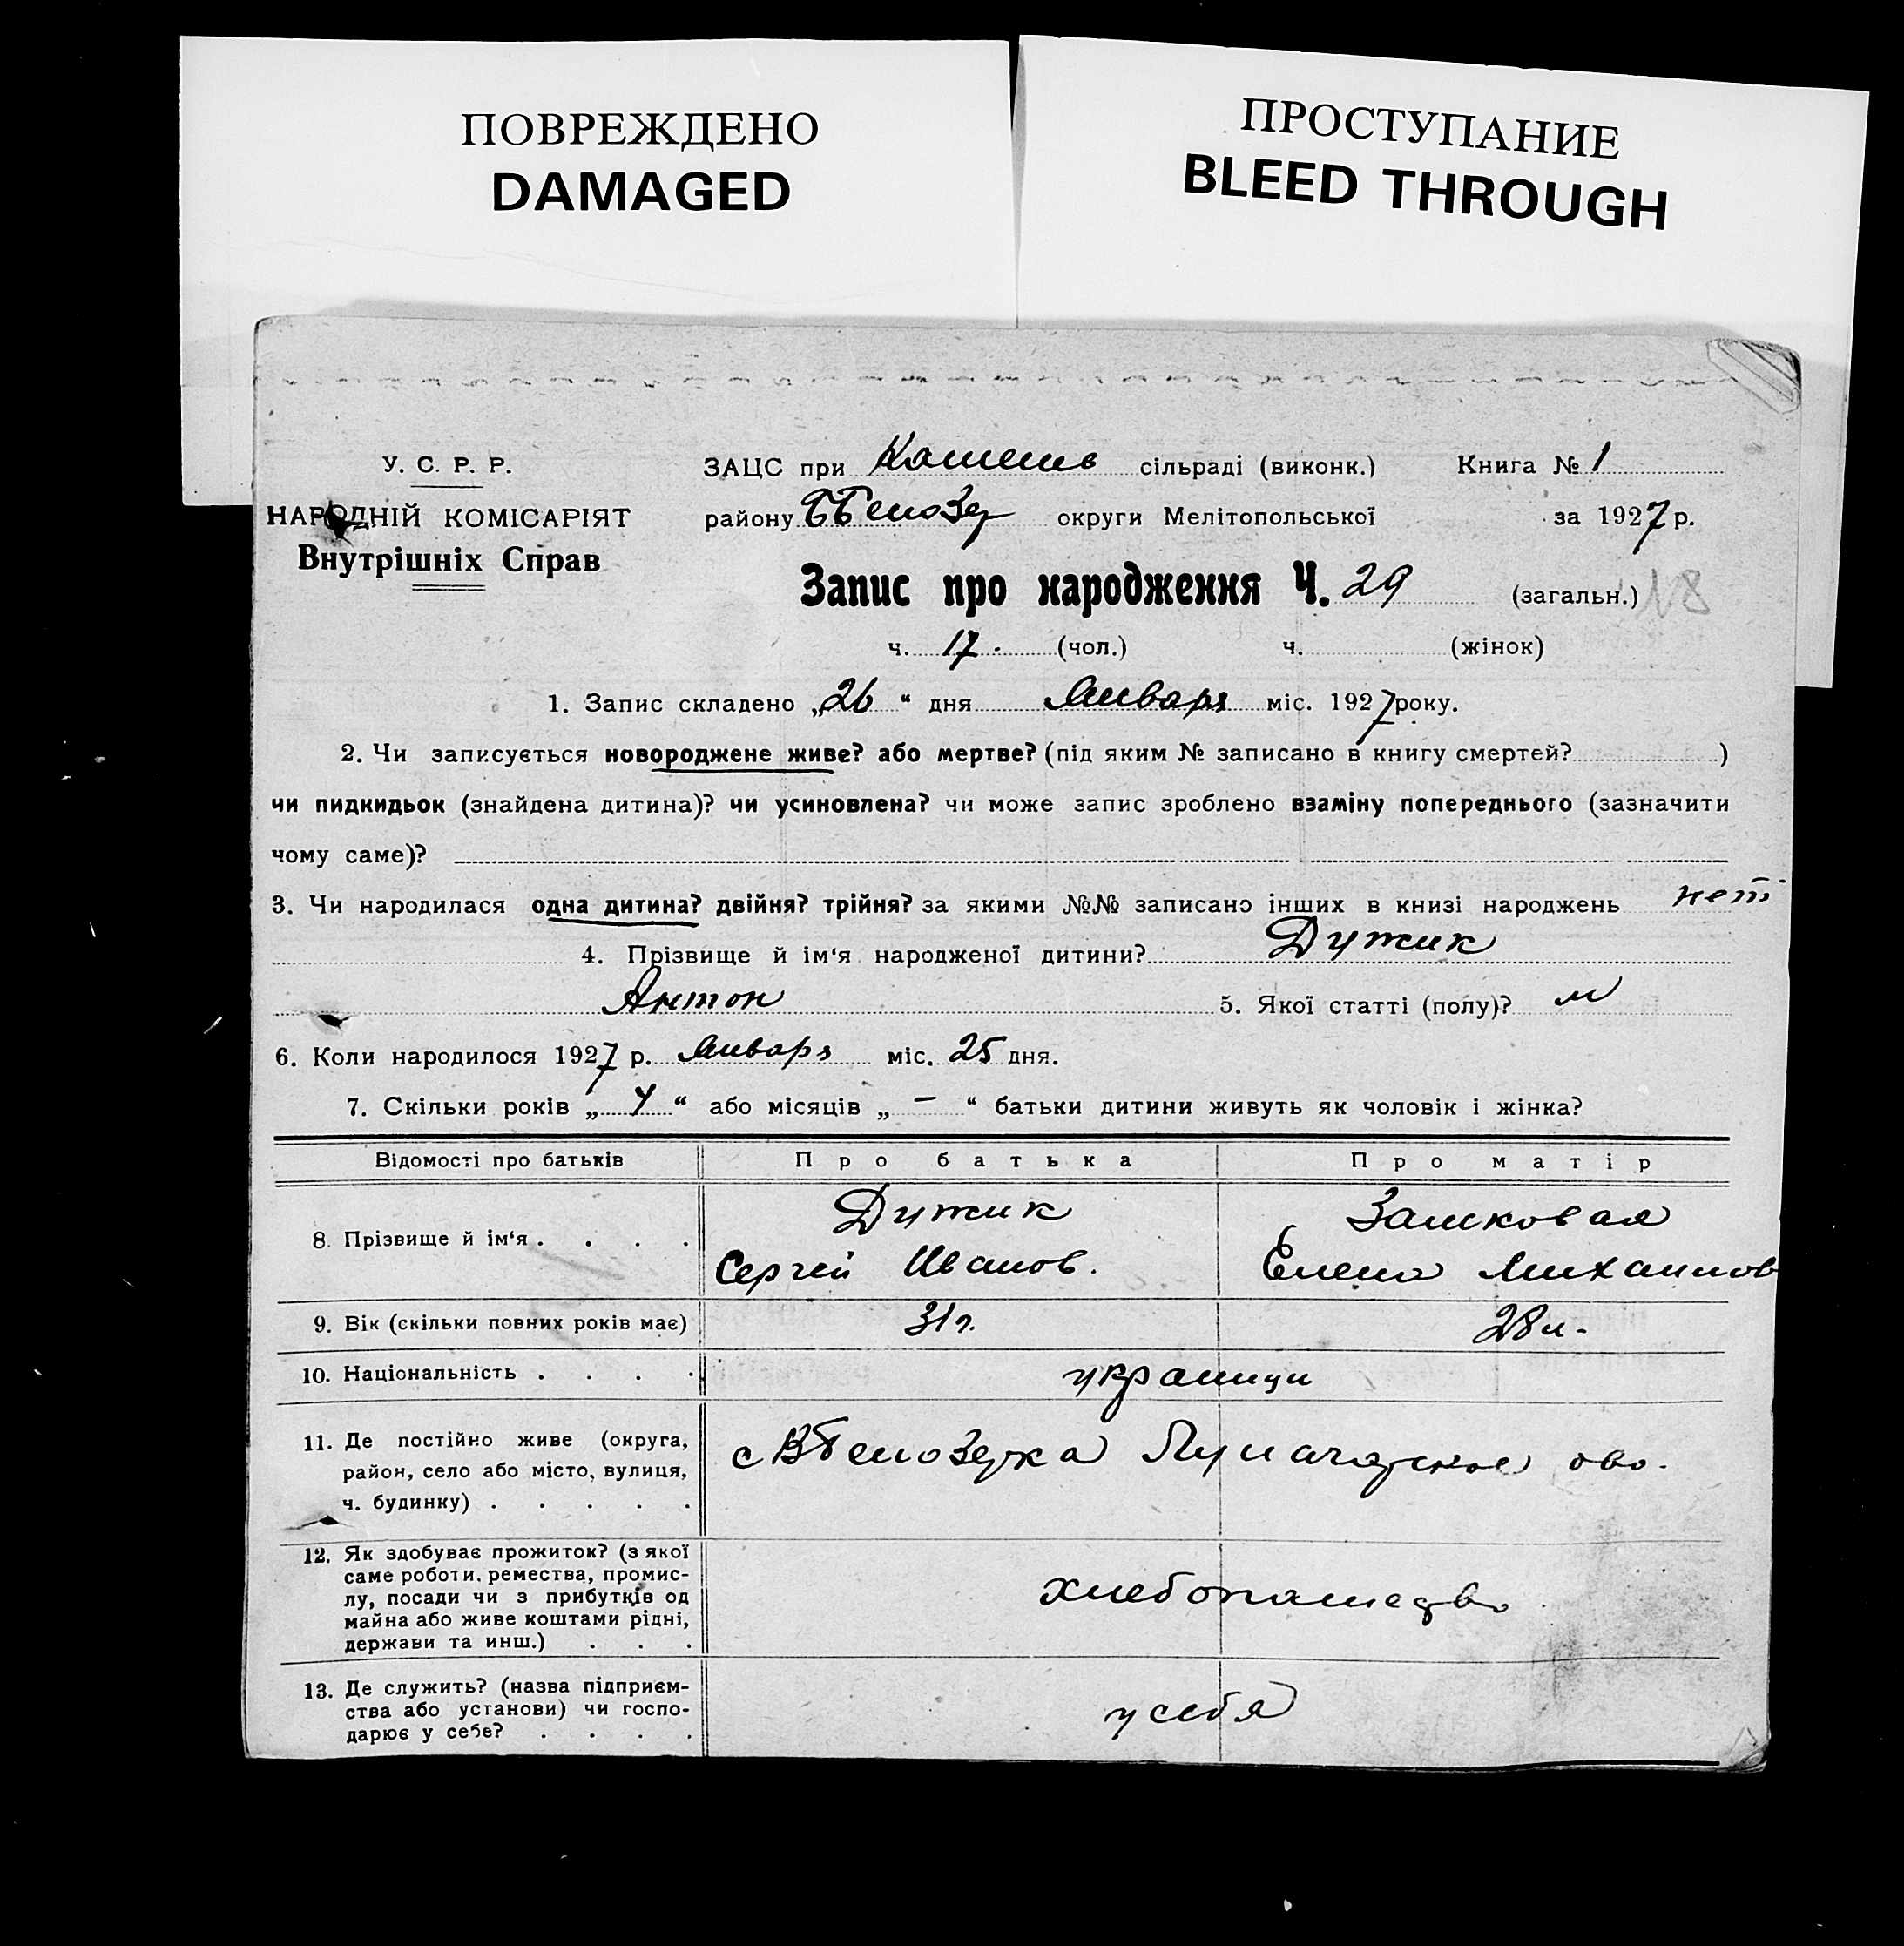 ПОВРЕЖДЕНО
DAMAGED
ПРОСТУПАНИЕ
BLEED THROUGH
У. С. Р. Р.
НАРОДНІЙ КОМІСАРІЯТ
Внутрішніх Справ
ЗАЦС при сільраді (виконк.) Книга № 1
району округи Мелітопольської за 1927 р.
Запис про народження Ч. 29 (загальн.) 18
ч. 17. (чол.) ч. (жінок)
1. Запис складено „26“ дня Января міс. 1927 року.
2. Чи записується новороджене живе? або мертве? (під яким № записано в книгу смертей? )
чи пидкидьок (знайдена дитина)? чи усиновлена? чи може запис зроблено взаміну попереднього (зазначити
чому саме)?
3. Чи народилася одна дитина? двійня? трійня? за якими №№ записано інших в книзі народжень нет
4. Прізвище й ім‘я народженої дитини? Дужик
Антон 5. Якої статті (полу)? м
6. Коли народилося 1927 р. Января міс. 25 дня.
7. Скільки років „ 4 “ або місяців „ — “ батьки дитини живуть як чоловік і жінка?
Відомості про батьків Про батька Про матір
8. Прізвище й ім‘я . . . .
Дужик
Сергей Иванов.
Замковая
Елена Михаилов
9. Вік (скільки повних років має) 31 г. 28 л.
10. Національність . . . . украинци
11. Де постійно живе (округа,
район, село або місто, вулиця,
ч. будинку) . . . . .
12. Як здобуває прожиток? (з якої
саме роботи, ремества, промис-
лу, посади чи з прибутків од
майна або живе коштами рідні,
держави та инш.) . . .
хлебопашество
13. Де служить? (назва підприєм-
ства або установи) чи госпо-
дарює у себе? . . . .
у себя